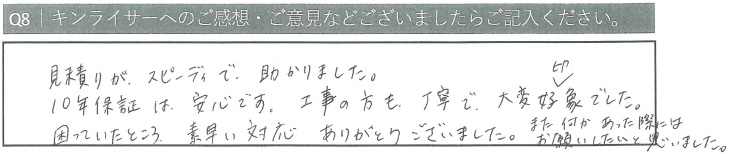 Q8 | キンライサーへのご感想・ご意見などございましたらご記入ください。
見積りが、スピーディで、助かりました。
10年保証は、安心です。工事の方も、丁寧で、大変好印象でした。
困っていたところ、素早い対応ありがとうございました。また何かあった際には
お願いしたいと思いました。